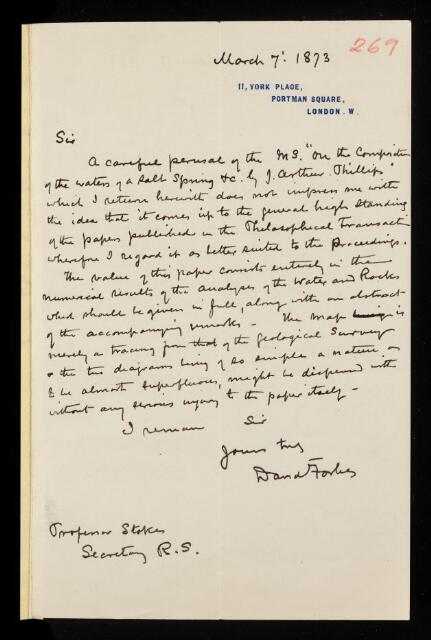 269
March 7: 1873
11, YORK PLACE,
PORTMAN SQUARE,
LONDON. W.
Sir
A careful perusal of the M.S. "On the Composition
of the waters of a Salt Spring &c. by J. Arthur Phillips"
which I return herewith does not impress me with
the idea that it comes up to the general high standing
of the papers published in the Philosophical Transactions
wherefore I regard it as better suited to the Proceedings.
The value of this paper consists entirely in the
numerical results of the analyses of the Water and Rocks
which should be given in full, along with an abstract
of the accompanying remarks – The map is
merely a tracing from that of the Geological Survey
& the two diagrams being of so simple a nature as
to be almost superfluous, might be dispensed with
without any serious injury to the paper itself –
I remain Sir
Yours truly
David Forbes
Professor Stokes
Secretary R.S.